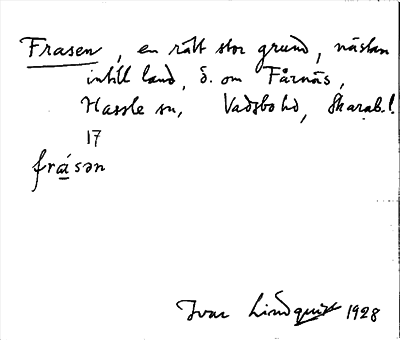 Frasen, en rätt stor grund, nästan
intill land, ö. om Fårnäs,
Hassle sn, Vadsbo hd, Skarab.l.
17
frásən
Ivar Lindquist 1928